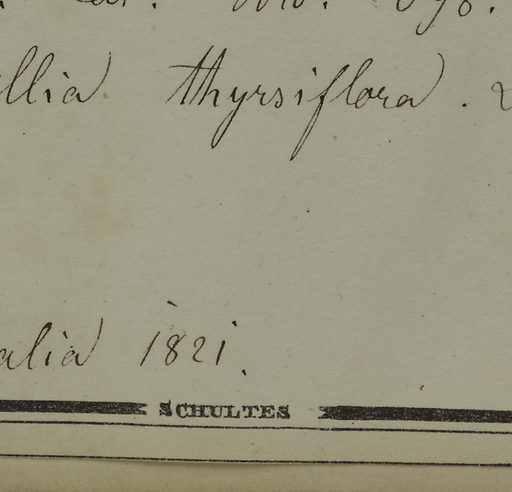 llia thyrsiflora.
alia 1821.
SCHULTES